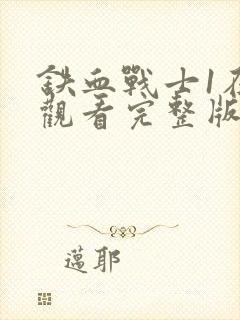 鉄血戰士1在
觀看完整版
邁耶